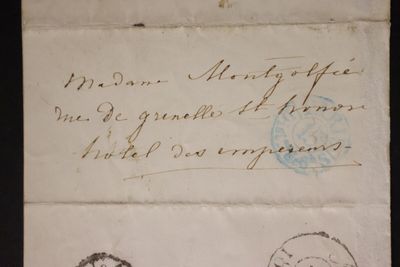 Madame Montgolfié
rue de grenelle St honoré
hotel des empereurs